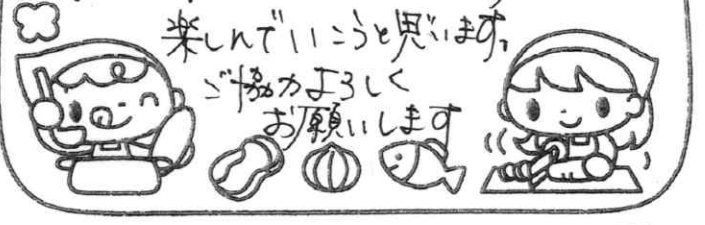 楽しんでいこうと思います。
ご協力よろしく
お願いします